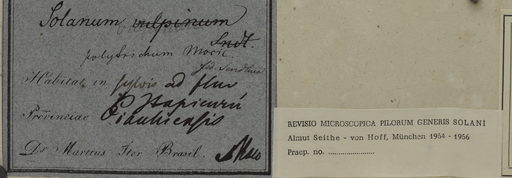 Solanum vulpinum
Sndt.
polytrichum Moric.
fid. Sendtner
Habitat in sylvis ad flum
Itapicurú
Provinciae Piauhiensis
Dr. Martius Iter Brasil. Majo
REVISIO MICROSCOPICA PILORUM GENERIS SOLANI
Almut Seithe - von Hoff, München 1954 - 1956
Praep. no. ........................